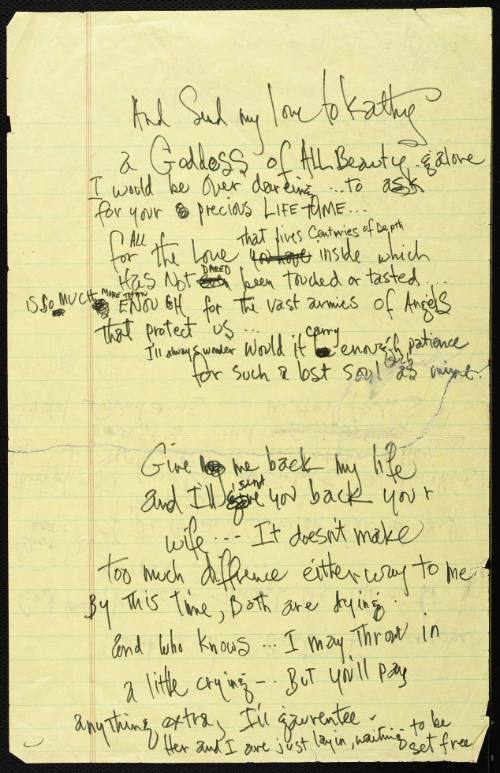 And Send my love to Kathy
a Goddess of ALL Beauty galore
I would be over dareing ... to ask
for your precious LIFE TIME...
for ALL the Love that lives Centuries of Depth inside which
Has Not DARED been touched or tasted ...
is so MUCH MORE THAN ENOUGH for the vast armies of Angels
that protect us ...
I'll always wonder would it carry enough patience
for such a lost soul as mine.
Give me back my life
and I'll send you back your
wife --- It doesn't make
too much difference either way to me
By this Time, Both are dying.
and who knows ... I may throw in
a little crying -- But you'll pay
anything extra, I'll gaurentee.
Her and I are just layin, waiting to be
set free